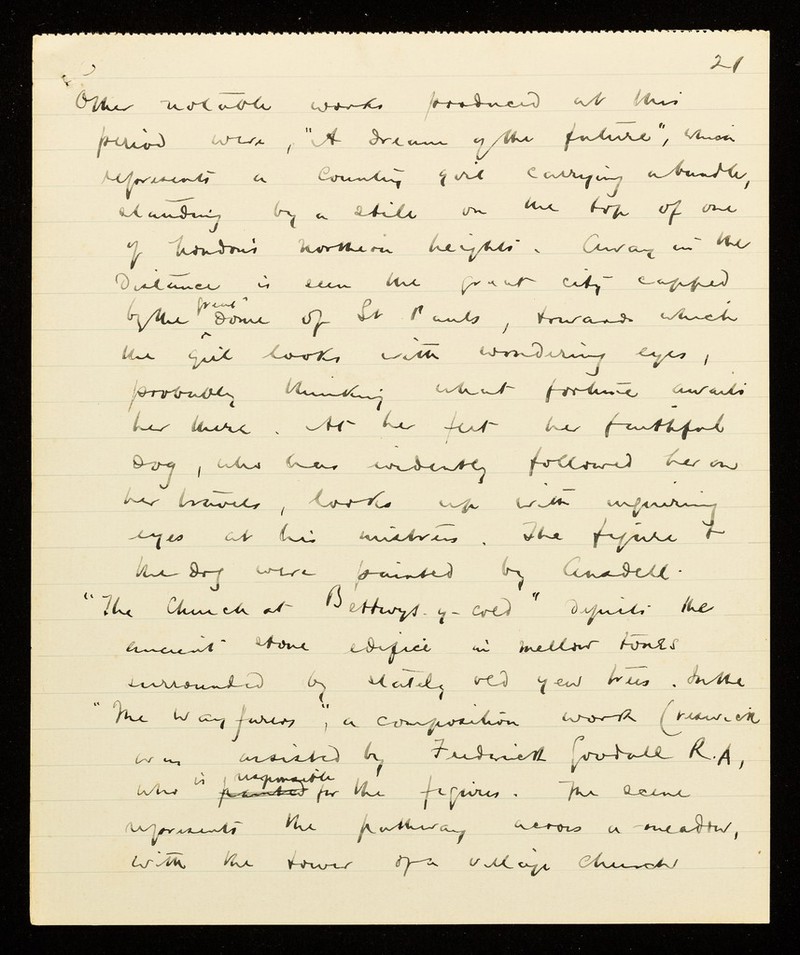 21
Other notable works produced at this
period were, "A dream of the future", which
represents a country girl carrying a bundle,
standing by a stile on the top of one
of London's northern heights. Away in the
distance is seen the great city capped
by the great dome of St Pauls, towards which
the girl looks with wondering eyes,
probably thinking what fortune awaits
her there. At her feet her faithful
dog, who has evidently followed her on
her travels, looks up with inquiring
eyes at his mistress. The figure &
the dog were painted by Ansdell.
"The Church at Bettwys-y-coed" depicts the
ancient stone edifice in mellow tones
surrounded by stately old yew trees. In the
"The Wayfarers", a composition work (
was assisted by Frederick Goodall R.A,
who is painted responsible for the figures. The scene
represents the pathway across a meadow,
with the tower of a village church